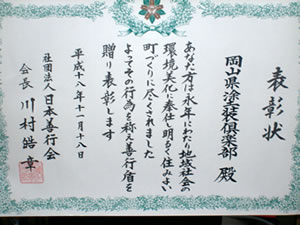 表彰状
岡山県塗装倶楽部 殿
あなた方は永年にわたり地域社会の
環境美化に奉仕し明るく住みよい
町づくりに尽くされました
よってその行為を称え善行宿を
贈り表彰します
平成十八年十一月十八日
社団法人 日本善行会
会長 川村皓章